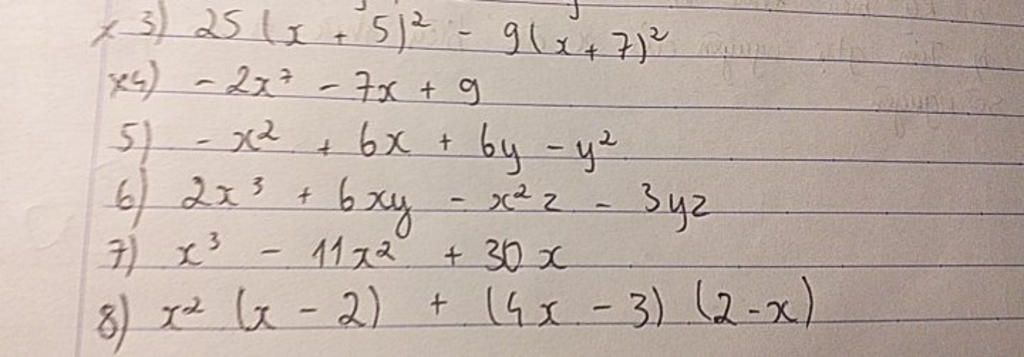 x 3) 25 (x + 5)² - 9(x + 7)²
x4) - 2x⁷ - 7x + 9
5) - x² + 6x + 6y - y²
6) 2x³ + 6xy - x²z - 3yz
7) x³ - 11x² + 30x
8) x² (x - 2) + (4x - 3) (2-x)